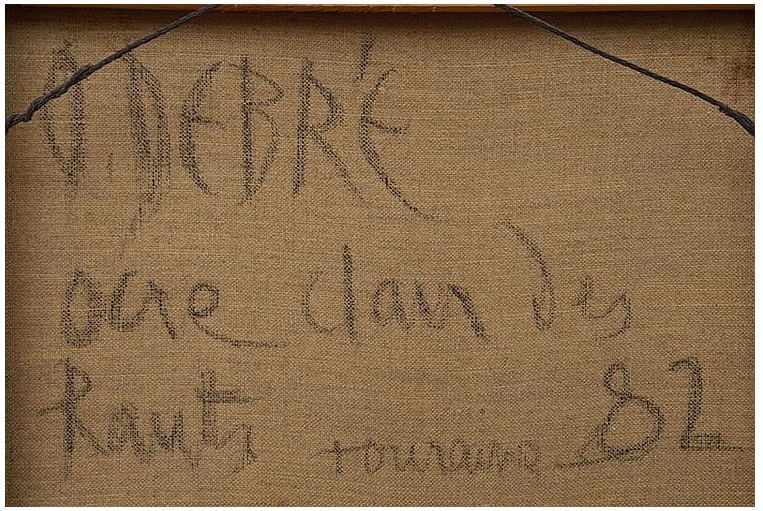 O. DEBRÉ
ocre clair des
Rauts touraine 82